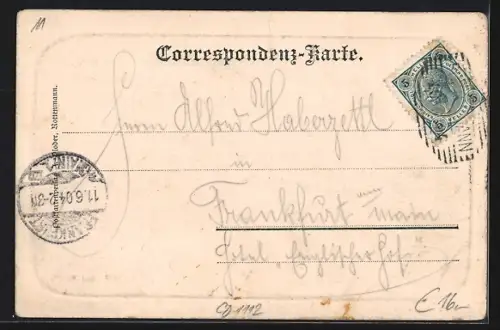 11
Correspondenz-Karte.
Herrn Alfred Haberzettl
in
Frankfurt am main
Hotel „Englischer Hof"
Rottenmann.
11.6.04
CD 1112
€ 16.-